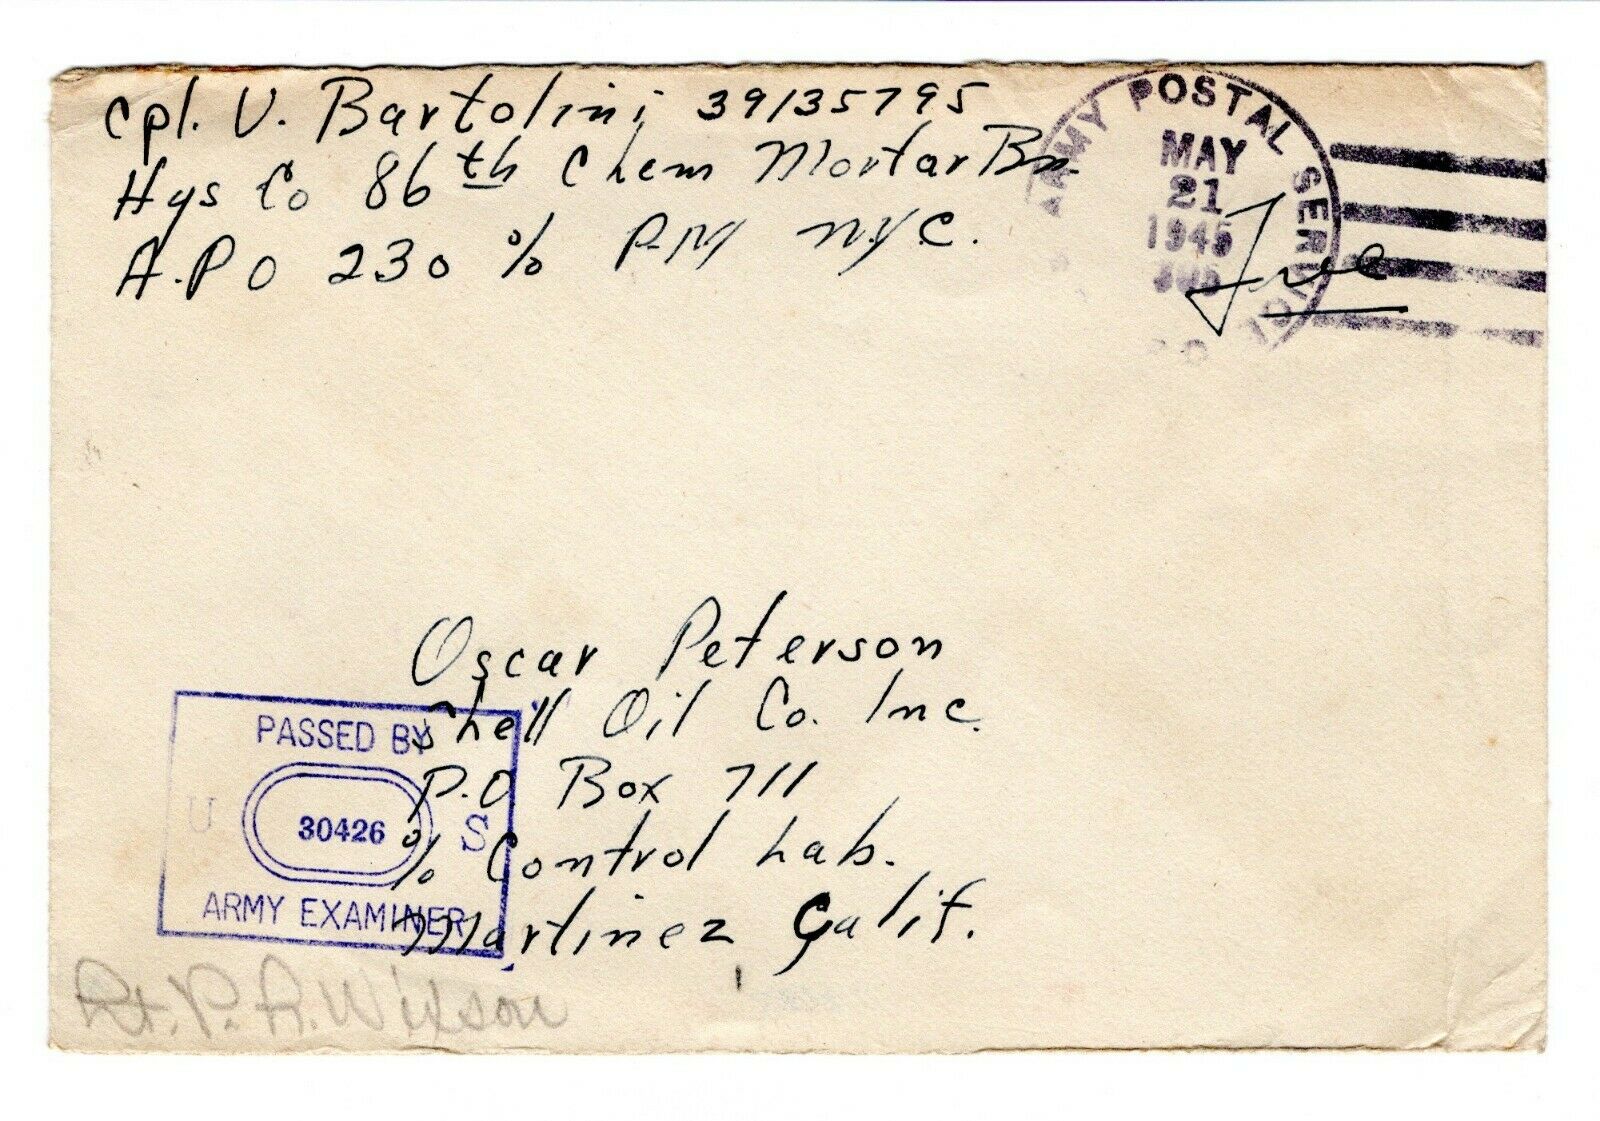 Cpl. V. Bartolini 39135795
Hqs Co 86th Chem Mortar Bn.
A.P.O 230 % P.M. N.Y.C.
ARMY POSTAL SERVICE
MAY
21
1945
Free
Oscar Peterson
Shell Oil Co. Inc.
P.O Box 711
% Control Lab.
Martinez Calif.
PASSED BY
U 30426 S
ARMY EXAMINER
Lt. P. A. Wilson